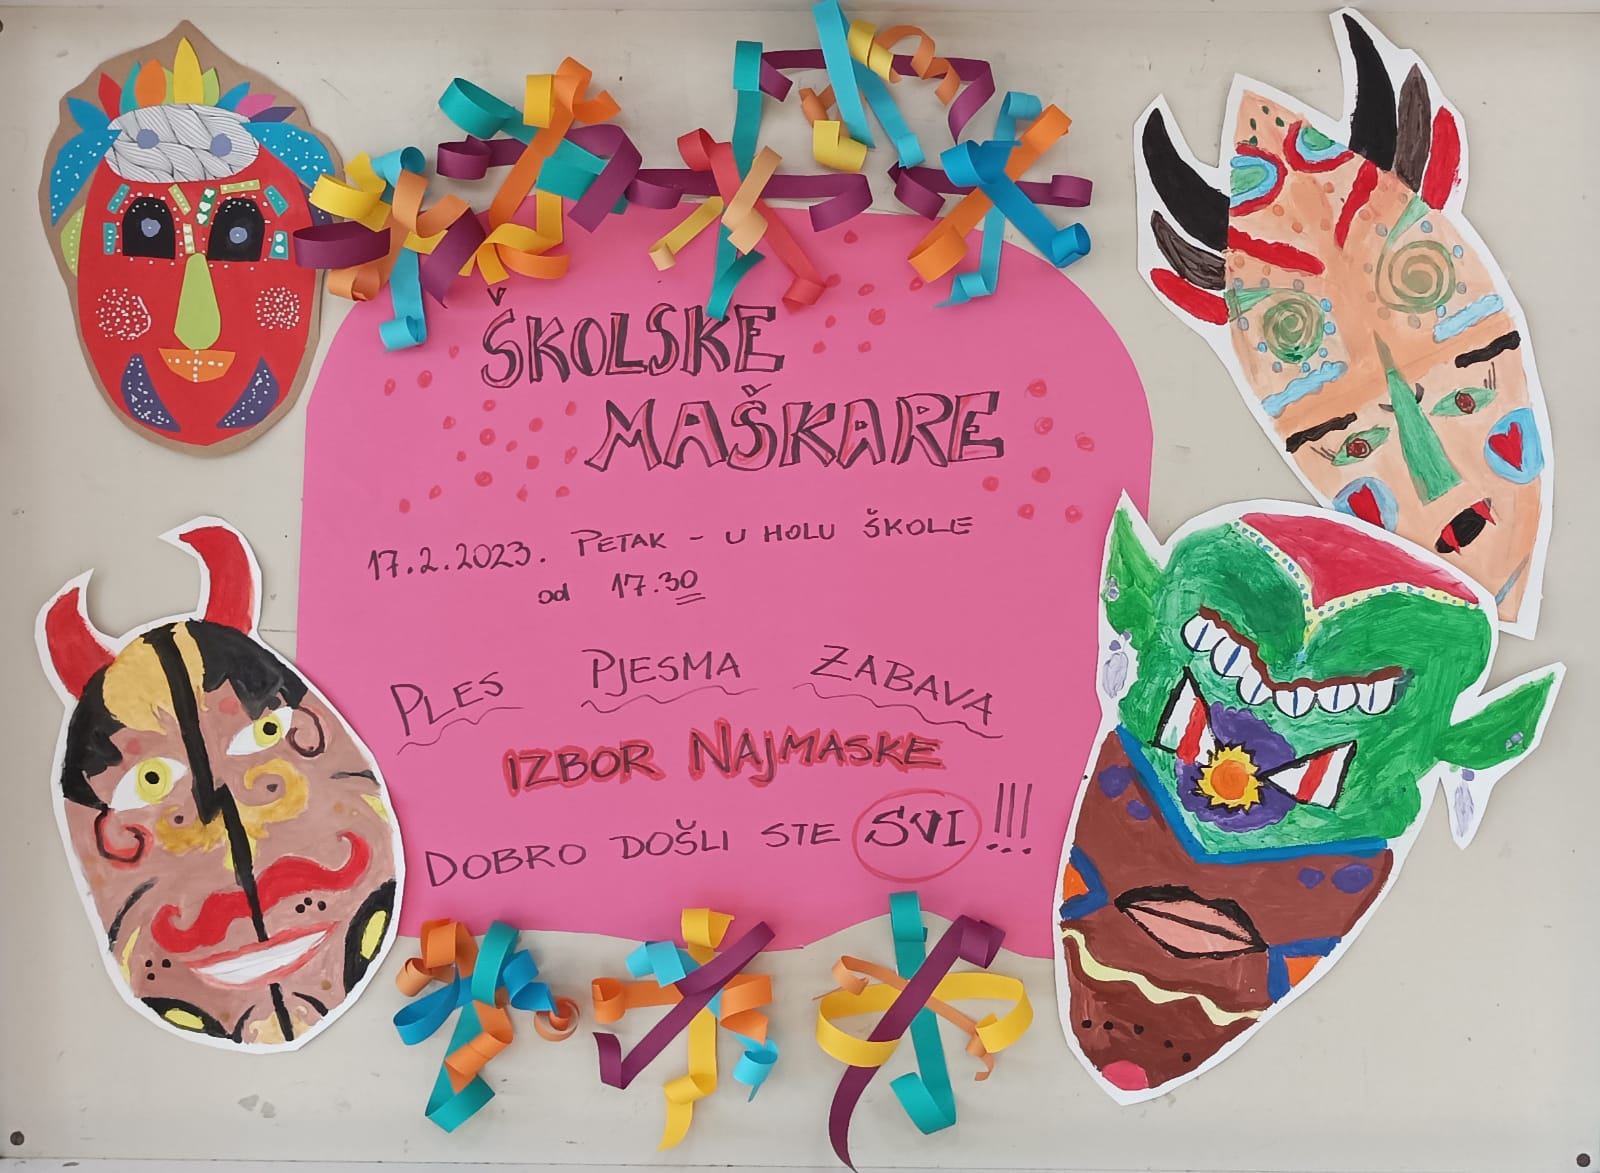 ŠKOLSKE
MAŠKARE
17.2.2023. PETAK - U HOLU ŠKOLE
od 17.30
PLES PJESMA ZABAVA
IZBOR NAJMASKE
DOBRO DOŠLI STE SVI !!!